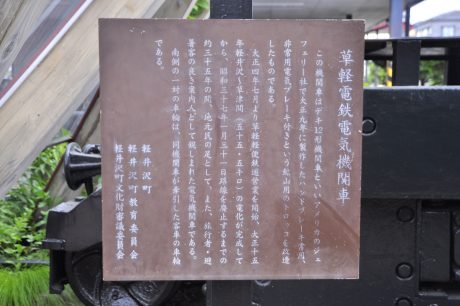 草軽電鉄電気機関車
この機関車はデキ12形機関車といいアメリカのジェ
フェリー社で大正九年に製作したハンドブレーキ常用、
非常用電気ブレーキ付きという鉱山用のトロッコを改造
したものである。
大正四年七月より草軽軽便鉄道営業を開始、大正十五
年軽井沢〜草津間（五十五・五キロ）の電化が完成して
から、昭和三十七年一月三十一日路線を廃止するまでの
約三十五年の間、地元民の足として、また、旅行者・避
暑客の良き案内人として親しまれた電気機関車である。
南側の一対の車輪は、同機関車が牽引した客車の車輪
である。
軽井沢町
軽井沢町教育委員会
軽井沢町文化財審議委員会